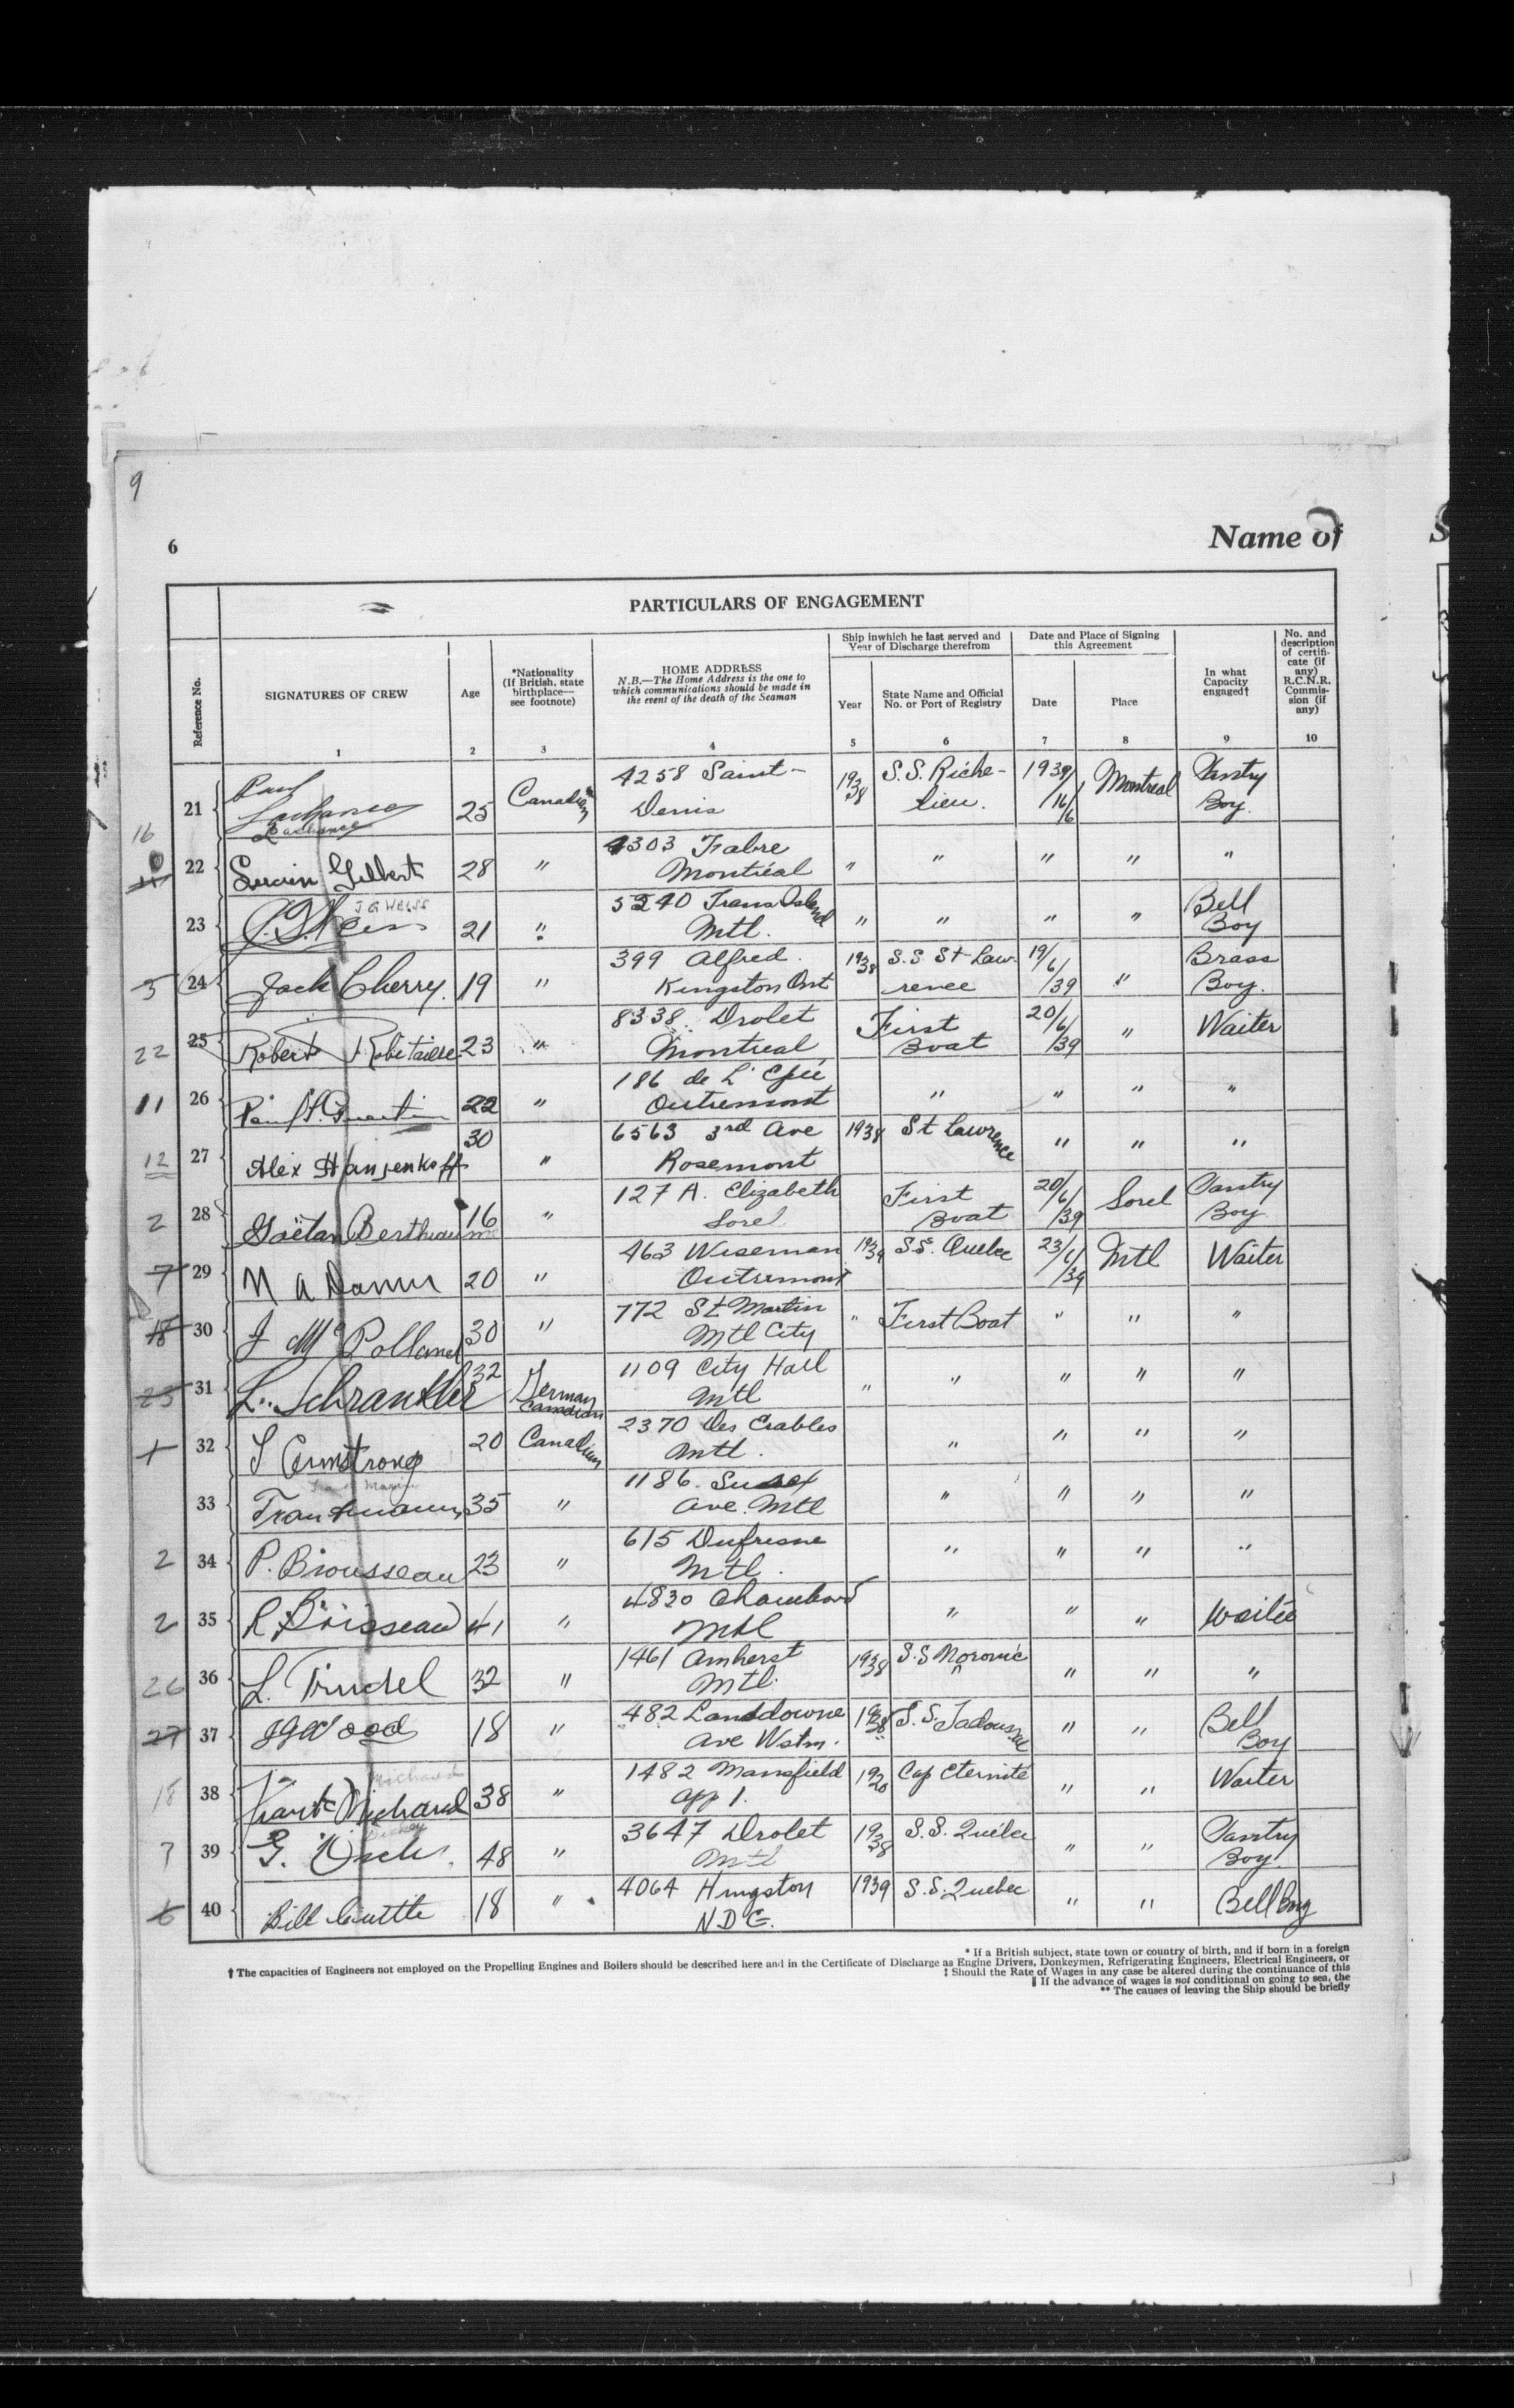 9
6
Name of
PARTICULARS OF ENGAGEMENT
Reference No.
SIGNATURES OF CREW
1
Age
2
*Nationality
(If British, state
birthplace—
see footnote)
3
HOME ADDRESS
N.B.—The Home Address is the one to
which communications should be made in
the event of the death of the Seaman
4
Ship inwhich he last served and
Year of Discharge therefrom
Year
5
State Name and Official
No. or Port of Registry
6
Date and Place of Signing
this Agreement
Date
7
Place
8
In what
Capacity
engaged†
9
No. and
description
of certifi-
cate (if
any)
R.C.N.R.
Commis-
sion (if
any)
10
21 Paul Lachance 25 Canadian 4258 Saint- 1938 S.S. Riche- 1939/ Montreal Pantry
Lachance Denis lieu. /16/6 Boy.
16
22 Gilbert 28 " 4303 Fabre " " " " "
Montréal
J G WEISS
23 J.G. Weiss 21 " 5240 Trans Island " " " " Bell
Mtl. Boy
5 24 Jack Cherry. 19 " 399 Alfred. 1938 S.S St Law- 19/6/39 " Brass
Kingston Ont rence Boy.
22 25 Robert Robitaille 23 " 8338 Drolet First 20/6/39 " Waiter
Montreal Boat
11 26 22 " 186 de L'Epée " " " "
Outremont
12 27 Alex Hansenkoff 30 " 6563 3rd Ave 1938 St Lawrence " " "
Rosemont
2 28 Gaëtan Berthiaume 16 " 127 A. Elizabeth First 20/6/39 Sorel Pantry
Sorel Boat Boy
7 29 N A 20 " 463 Wiseman 1939 S.S. Quebec 23/6/39 Mtl Waiter
Outremont
18 30 J Mc Polland 30 " 772 St. Martin " First Boat " " "
Mtl City
23 31 L. Schrankler 32 German Canadian 1109 City Hall " " " " "
Mtl
1 32 Armstrong 20 Canadian 2370 Des Erables " " " "
Mtl.
33 Trautmann 35 " 1186 Sussex " " " "
Ave. Mtl
2 34 P. Brousseau 23 " 615 Dufresne " " " "
Mtl.
2 35 R Boisseau 41 " 4830 Chambord " " " Waiter
Mtl
26 36 L. Trudel 32 " 1461 Amherst 1938 S.S Noronic " " "
Mtl.
27 37 Wood 18 " 482 Lansdowne 1938 S.S. Tadousac " " Bell
Ave Wstm. Boy
Michaud
18 38 Michaud 38 " 1482 Mansfield Cap Eternité " " Waiter
app 1.
7 39 48 " 3647 Drolet 1938 S.S. Québec " " Pantry
Mtl Boy.
6 40 Bill Cuttle 18 " 4064 Hingston 1939 S.S. Quebec " " Bell Boy
N D G.
* If a British subject, state town or country of birth, and if born in a foreign
† The capacities of Engineers not employed on the Propelling Engines and Boilers should be described here and in the Certificate of Discharge as Engine Drivers, Donkeymen, Refrigerating Engineers, Electrical Engineers, or
‡ Should the Rate of Wages in any case be altered during the continuance of this
‖ If the advance of wages is not conditional on going to sea, the
** The causes of leaving the Ship should be briefly